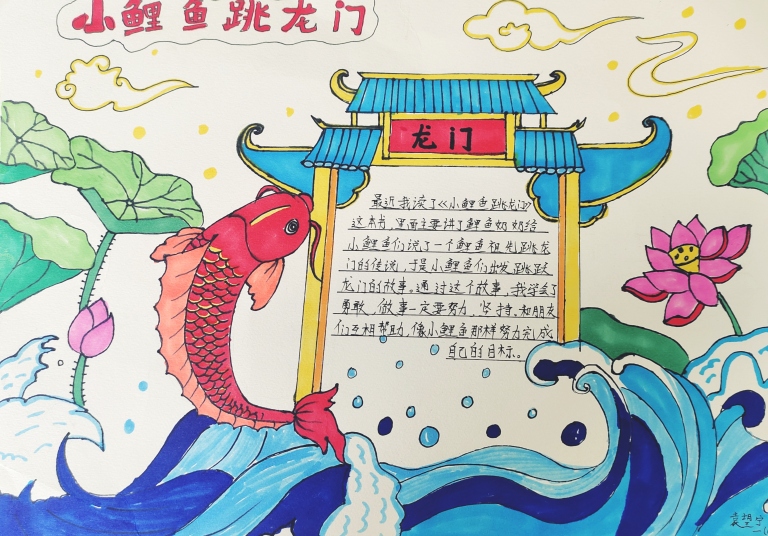 小鲤鱼跳龙门
龙门
最近我读了《小鲤鱼跳龙门》
这本书,里面主要讲了鲤鱼奶奶给
小鲤鱼们说了一个鲤鱼祖先跳龙
门的传说,于是小鲤鱼们出发跳跃
龙门的故事。通过这个故事,我学会了
勇敢,做事一定要努力,坚持,和朋友
们互相帮助,像小鲤鱼那样努力完成
自己的目标。